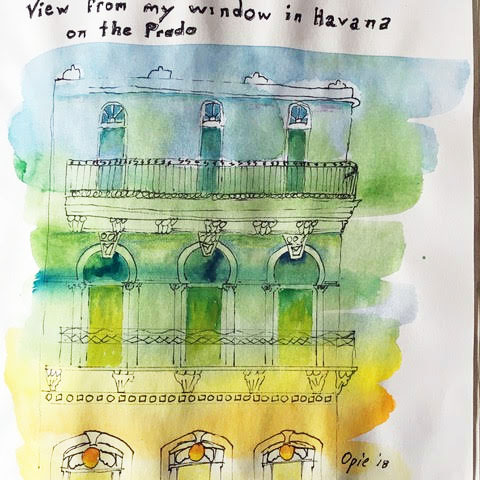 View from my window in Havana
on the Prado
Opie '18